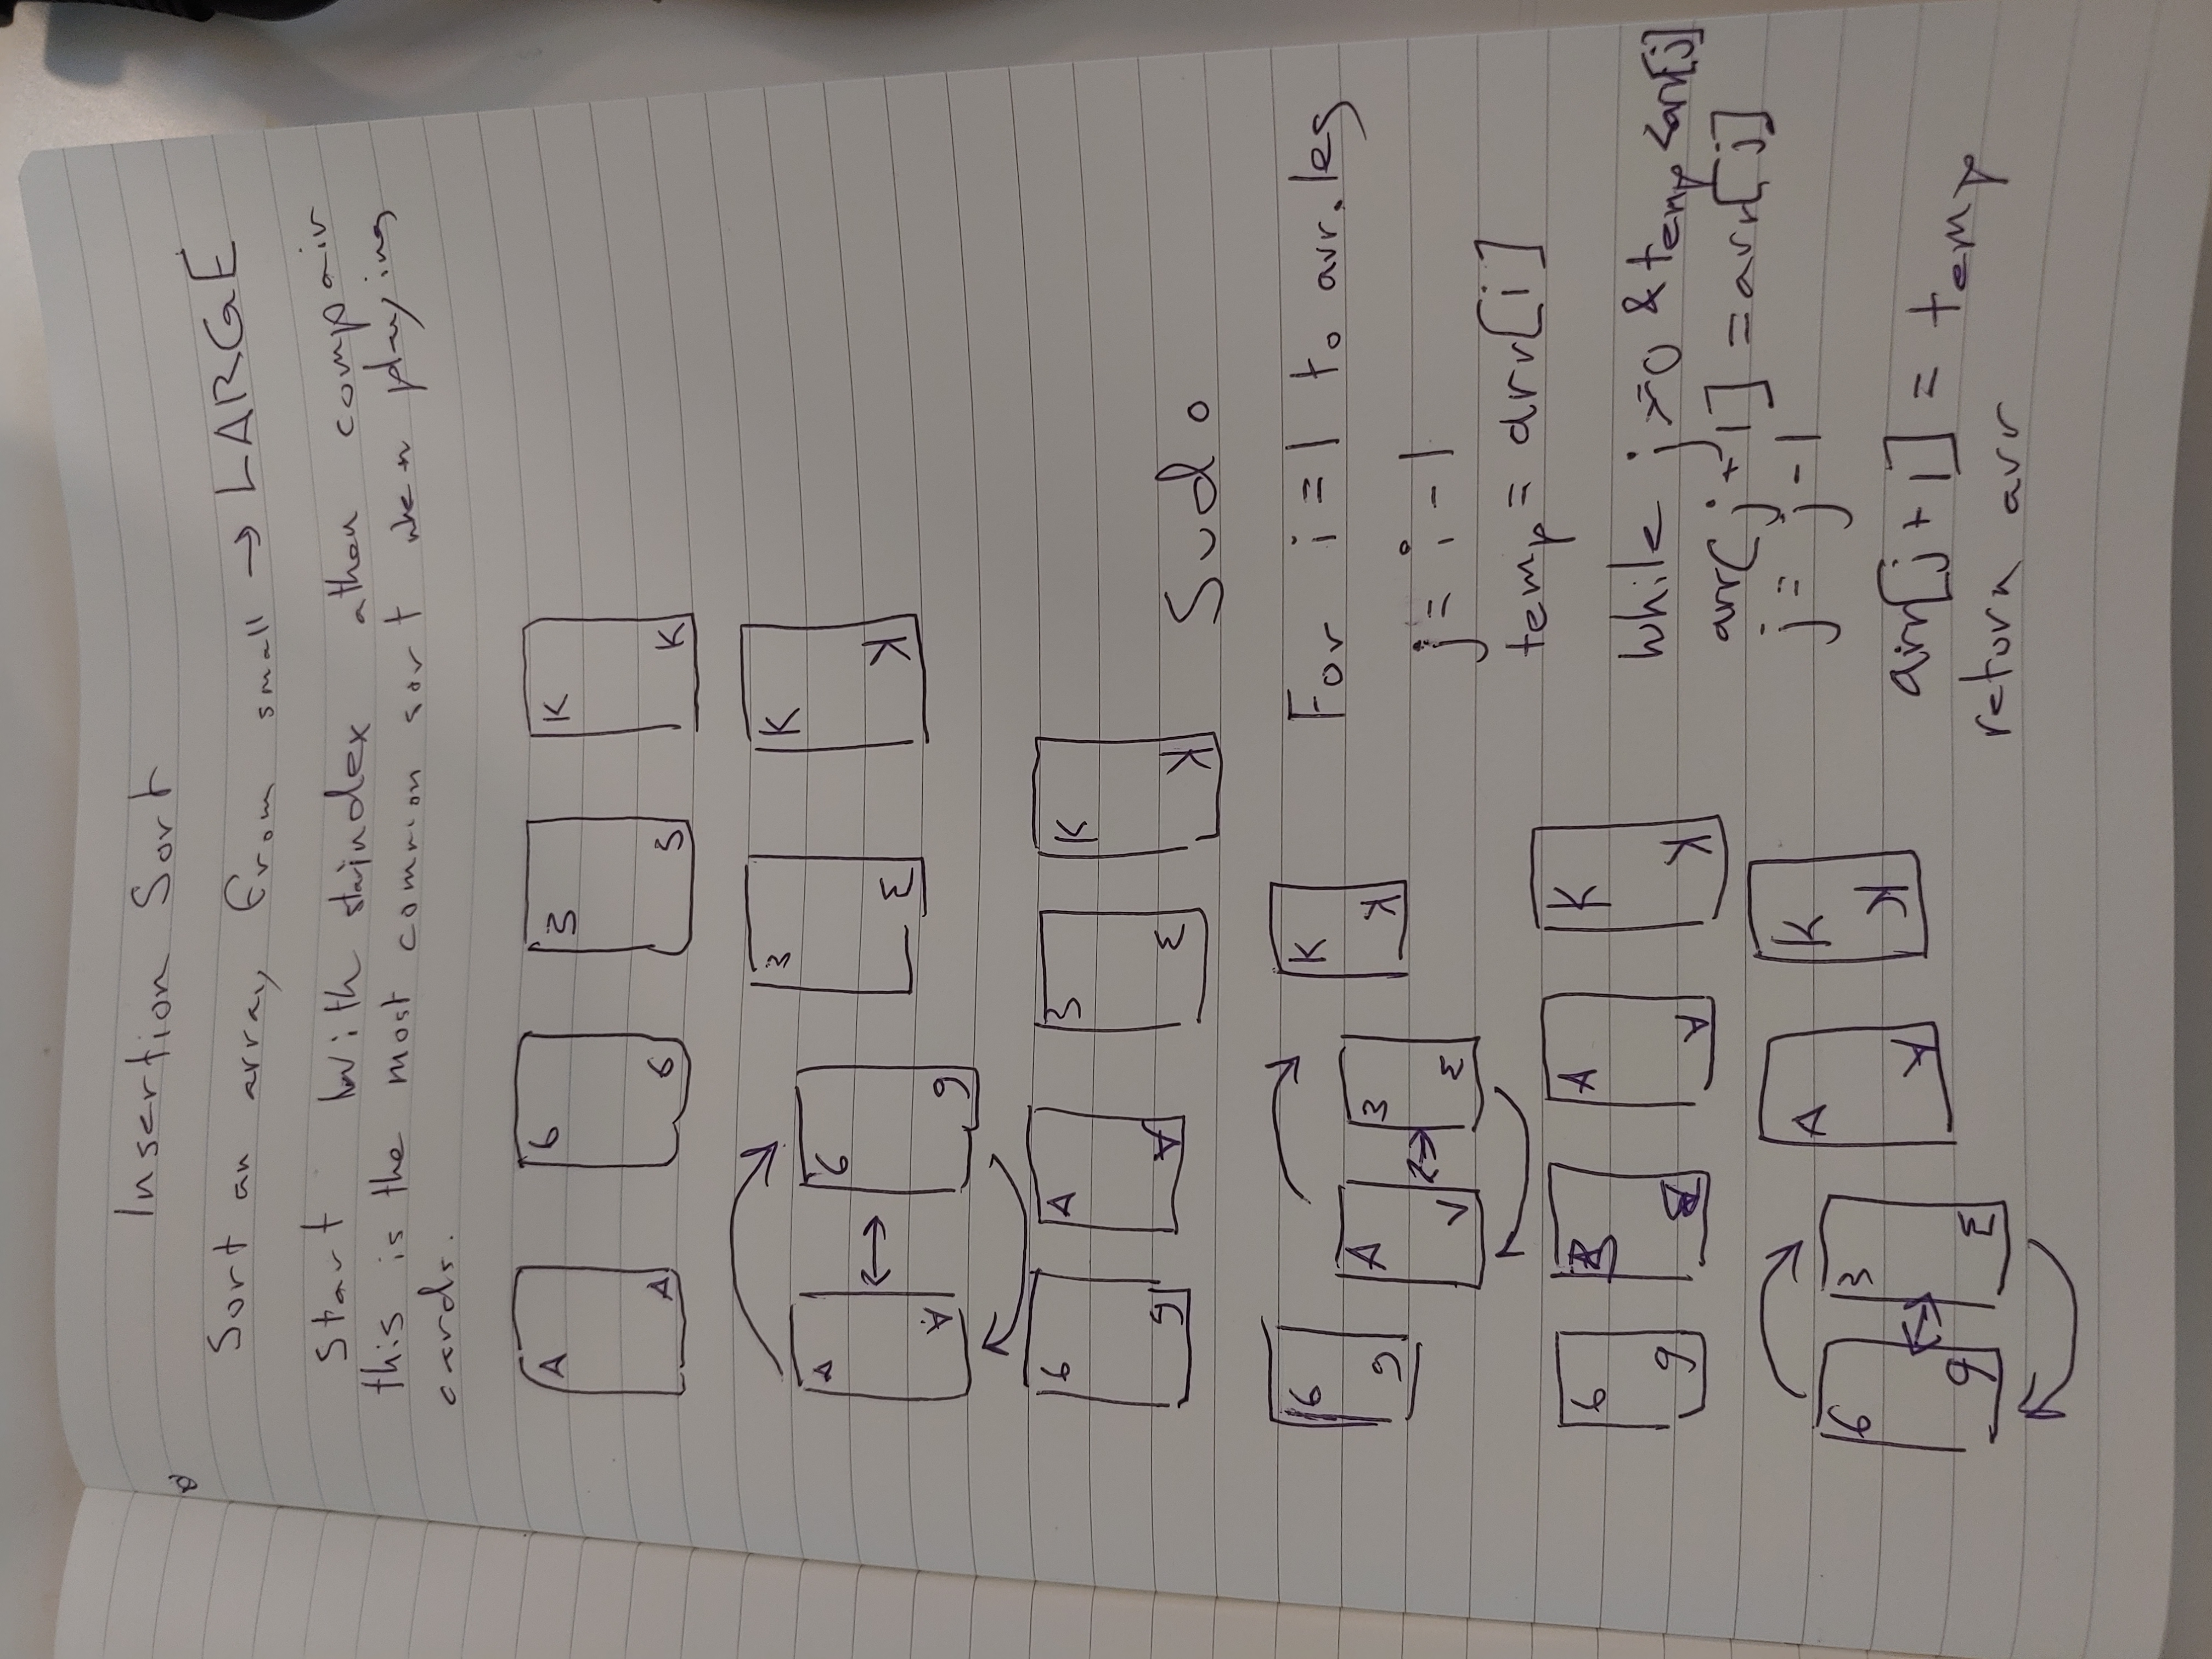 Insertion Sort
Sort an array from small → LARGE
Start With index athen compair
this is the most common sort when playing
cards.
A 6 3 K
A 6 3 K
A 6 3 K
A 6 3 K
6 A 3 K
6 A 3 K
Sudo
6 A 3 K
6 A 3 K
For i = 1 to arr.leg
j = i - 1
temp = arr[i]
6 3 A K
6 A K
while j >= 0 & temp < arr[j]
arr[j + 1] = arr[j]
j = j - 1
6 3 A K
6 3 A K
arr[j + 1] = temp
return arr